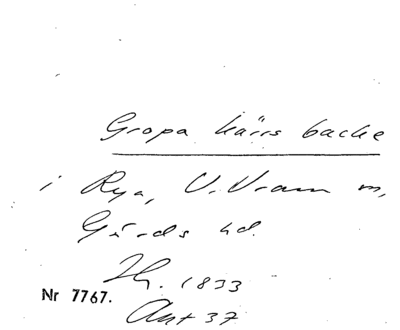 Gropa kärrs backe
i Rya, V. Vram m,
Gärds hd.
Ih. 1833
Nr 7767.
Akt 37